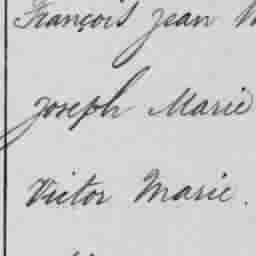 François Jean
Joseph Marie
Victor Marie.